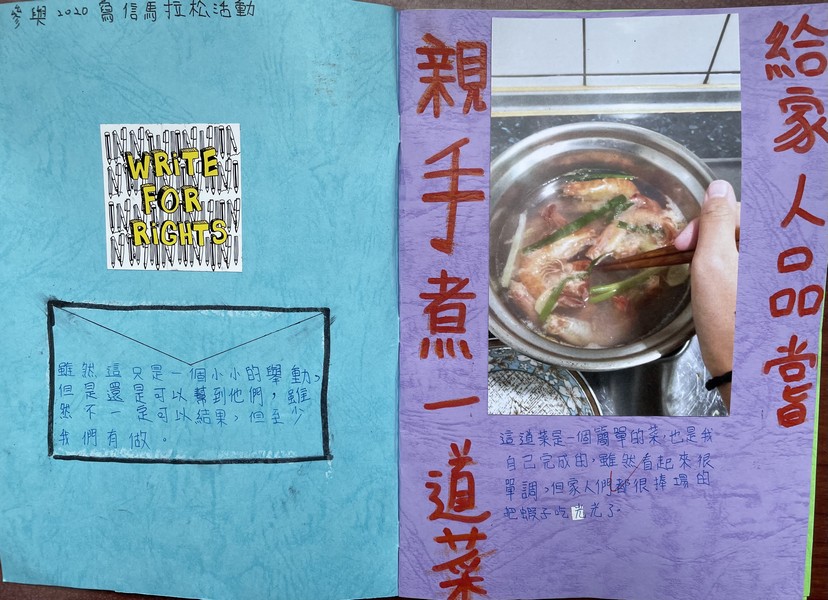 參與2020寫信馬拉松活動
WRITE
FOR
RIGHTS
雖然這只是一個小小的舉動,
但是還是可以幫到他們,雖
然不一定可以結果,但至少
我們有做。
親手煮一道菜
給家人品嘗
這道菜是一個簡單的菜,也是我
自己完成的,雖然看起來很
單調,但家人們都很捧場的
把蝦子吃光光了。